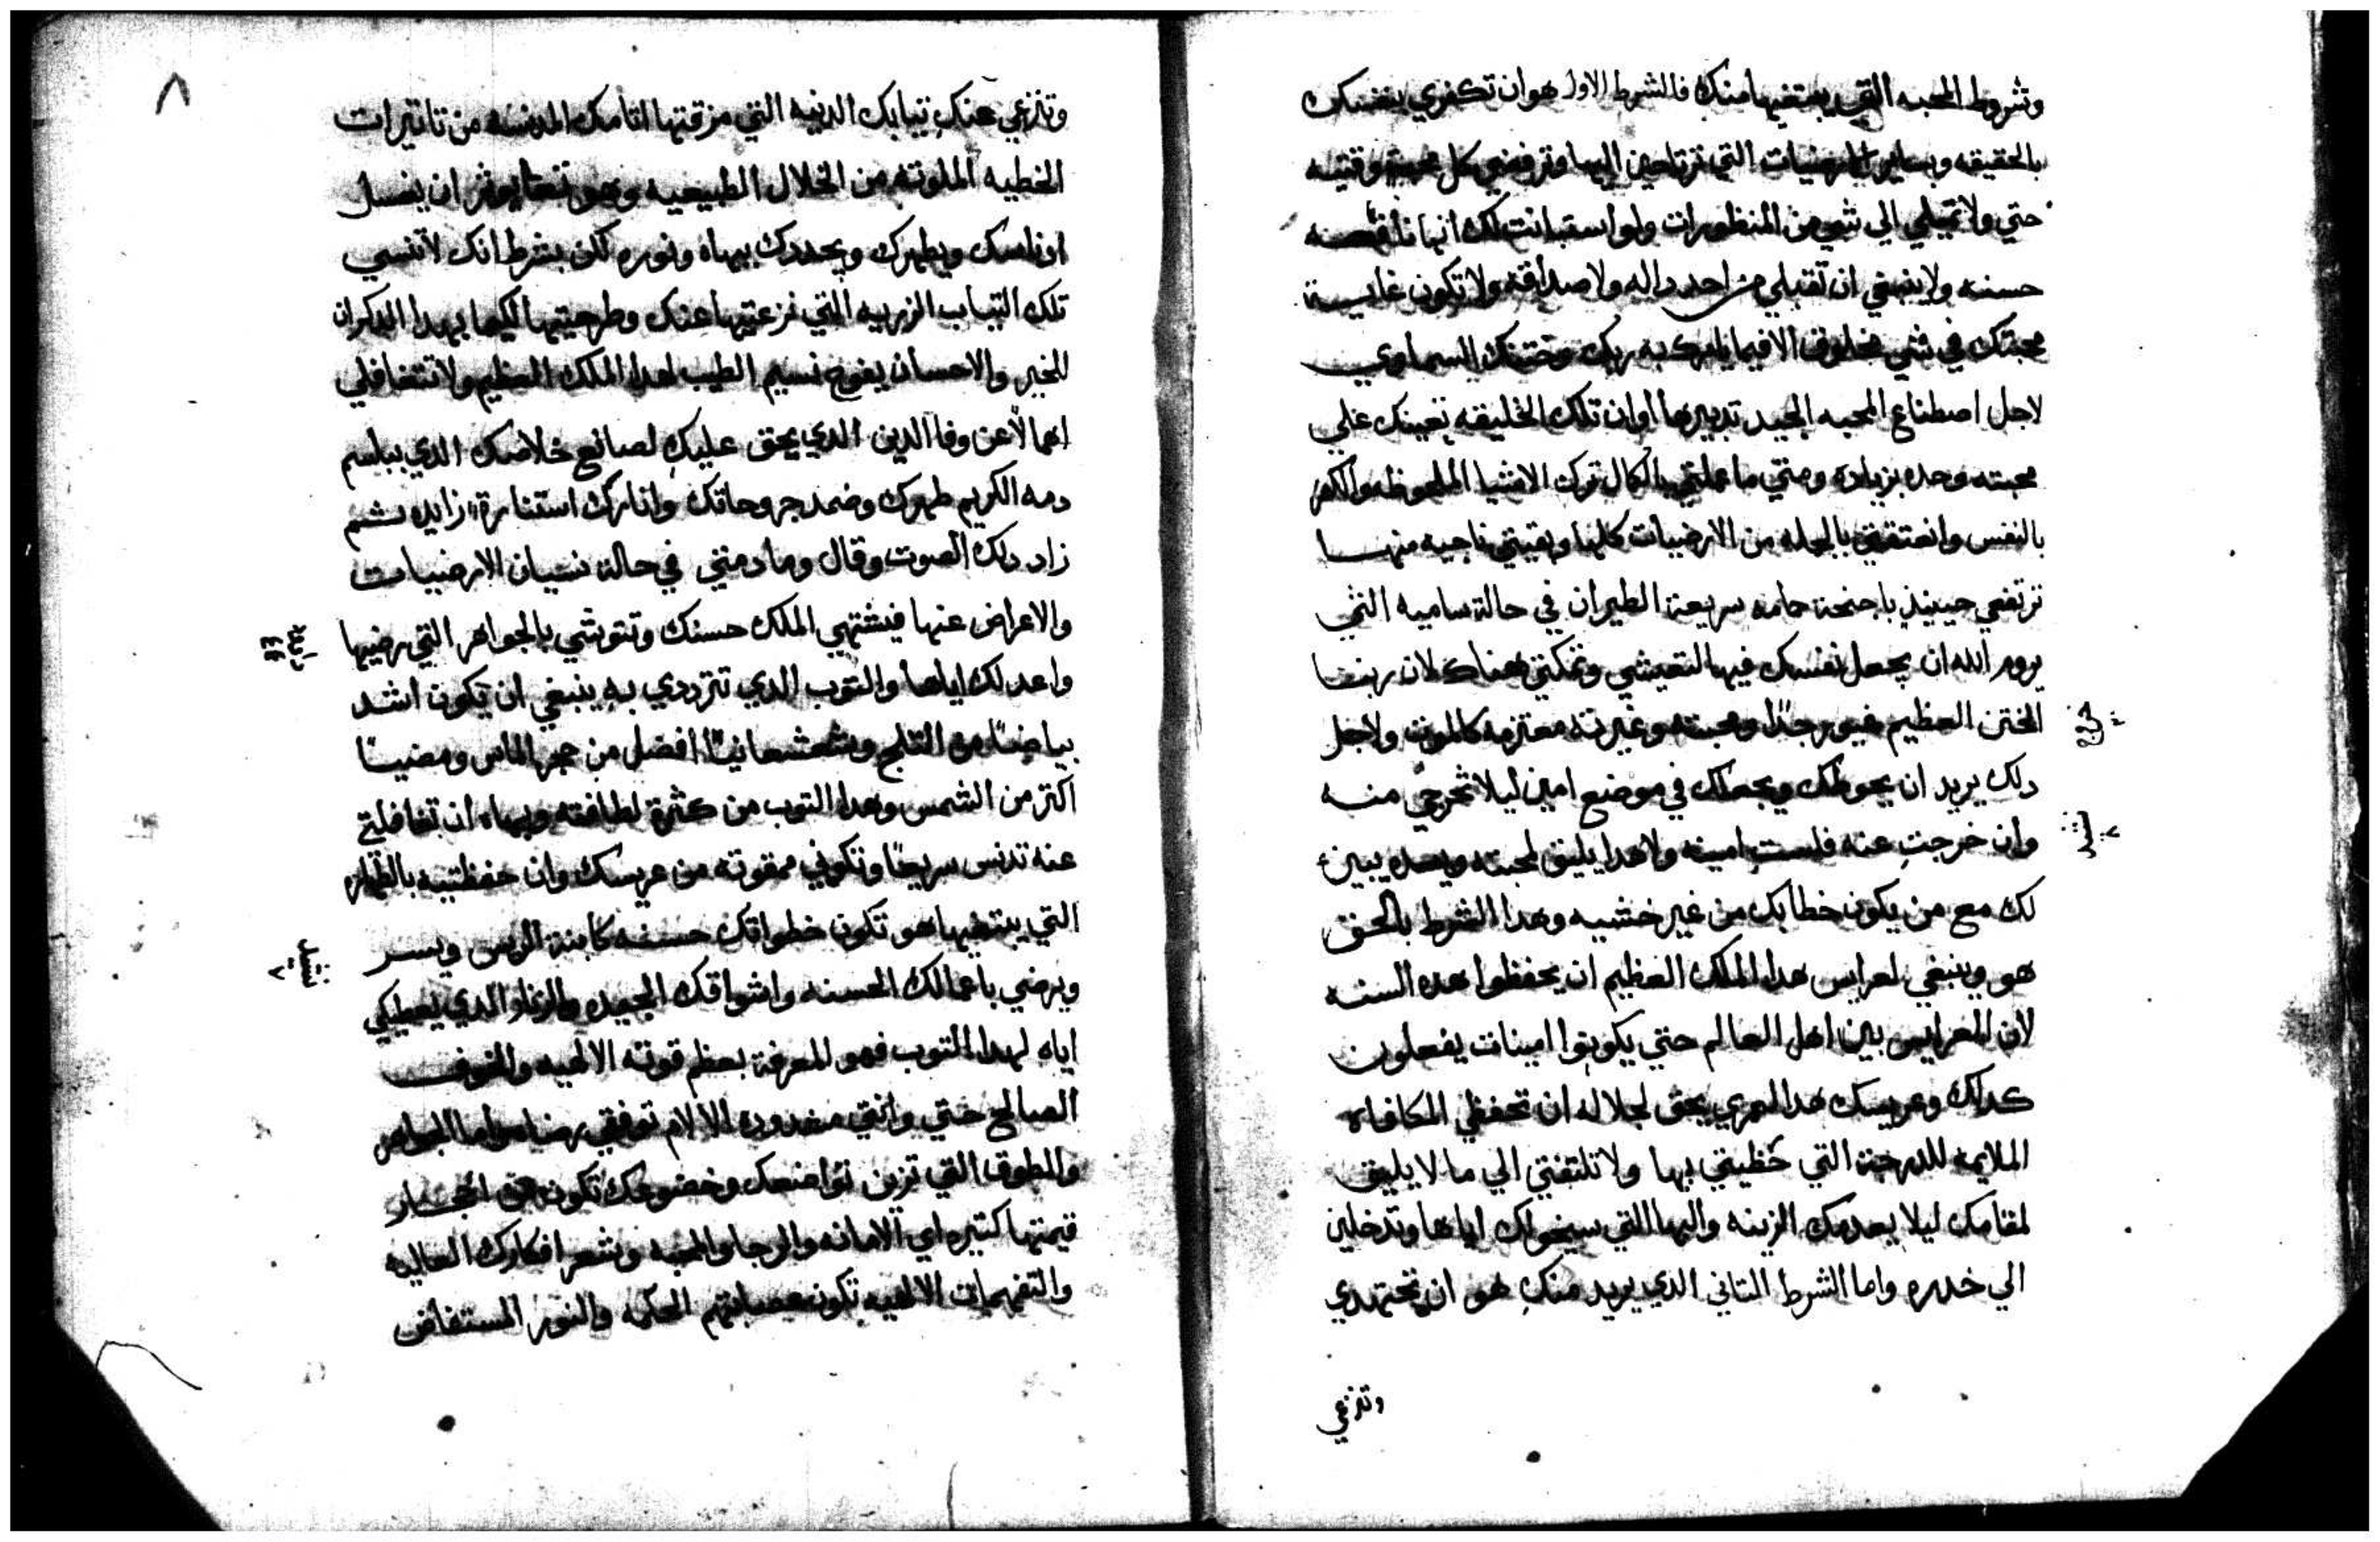 وشروط المحبه التي يبتغيها منك فالشرط الاول هو ان تكفري بنفسك
بالحقيقه وبساير الارضيات التي ترتاحين اليها وترفضي كل محبة وقتيه
حتي ولا تميلي الي شي من المنظورات ولو استبانت لك انها نافعه
حسنه ولا ينبغي ان تقبلي من احد داله ولا صداقه ولا تكون غاية
محبتك في شي مخلوق الا فيما يامرك به ربك وختنك السماوي
لاجل اصطناع المحبه الجيد تدبيرها او ان تلك الخليقه تعينك علي
محبته وحده بزياده ومتي ما عملتي بالكمال ترك الاشيا الملحوظه والكفر
بالنفس وانعتقتي بالجمله من الارضيات كلها وبقيتي ناجيه منها
ترتفعي حينيذ باجنحة حمامه سريعة الطيران في حالة ساميه التي
يروم الله ان يجعل نفسك فيها لتعيشي وتمكثي هناك لان ربنا
الختن العظيم غيور جدًا ومحبته وغيرته معتزمه كالموت ولاجل
دلك يريد ان يحوطك ويجعلك في موضع امين ليلا تخرجي منه
وان خرجتِ عنه فلستِ امينه ولا هدا يليق لمحبته وبعده يبين
لك مع من يكون خطابك من غير خشيه وهدا الشرط بالحق
هو وينبغي لعرايس هدا الملك العظيم ان يحفظوا هده السنه
لان العرايس بين اهل العالم حتي يكونوا امينات يفعلون
كدلك وعريسك هدا لعمري يحق لجلاله ان تحفظي المكافاه
الملايمه للدرجة التي حظيتي بها ولا تلتفتي الي ما لا يليق
لمقامك ليلا يعدمك الزينه والبها اللتي سيخولك اياها وتدخلين
الي خدره واما الشرط التاني الدي يريد منكِ هو ان تجتهدي
وتنزعي
٨
وتنزعي عنكِ تيابك الدنيه التي مزقتها اتامك المدنسه من تاتيرات
الخطيه الملوته من الخلال الطبيعيه وهو تعالي يوتر ان يغسل
ادناسك ويطهرك ويجددك ببهاه ونوره لكن بشرط انك لا تنسي
تلك التياب الزريه التي نزعتيها عنك وطرحتيها لكيما بهدا الدكران
للخير والاحسان يفوح نسيم الطيب لهدا الملك العظيم ولا تتغافلي
اهمالاً عن وفا الدين الدي يحق عليكِ لصانع خلاصك الدي ببلسم
دمه الكريم طهرك وضمد جروحاتك وانارك استنارةً زايده تم
زاد دلك الصوت وقال وما دمتي في حالة نسيان الارضيات
والاعراض عنها فيشتهي الملك حسنك وتتوشي بالجواهر التي رضيها
واعد لك اياها والتوب الدي تتردي به ينبغي ان يكون اشد
بياضًا من التلج وشعشعانيًا افضل من حجر الماس ومضيًا
اكتر من الشمس وهدا التوب من كثرة لطافته وبهاه ان تغافلتي
عنه تدنس سريعًا وتكوني ممقوته من عريسك وان حفظتيه بالطهاره
التي يبتغيها هو تكون خطواتك حسنه كابنة الريس ويسر
ويرضي باعمالك الحسنه واشواقك الجيده والزنار الدي يعطيكي
اياه لهدا التوب فهو المعرفة بعظم قوته الالهيه والخوف
الصالح حتي وانتي مشدوده الالام توفقي رضاه واما الجواهر
والطوق التي تزين تواضعك وخضوعك تكون من احجار
قيمتها كتيره اي الامانه والرجا والمحبه وشعر افكارك العاليه
والتفهمات الالهيه تكون عصابتهم الحكمه والنور المستفاض